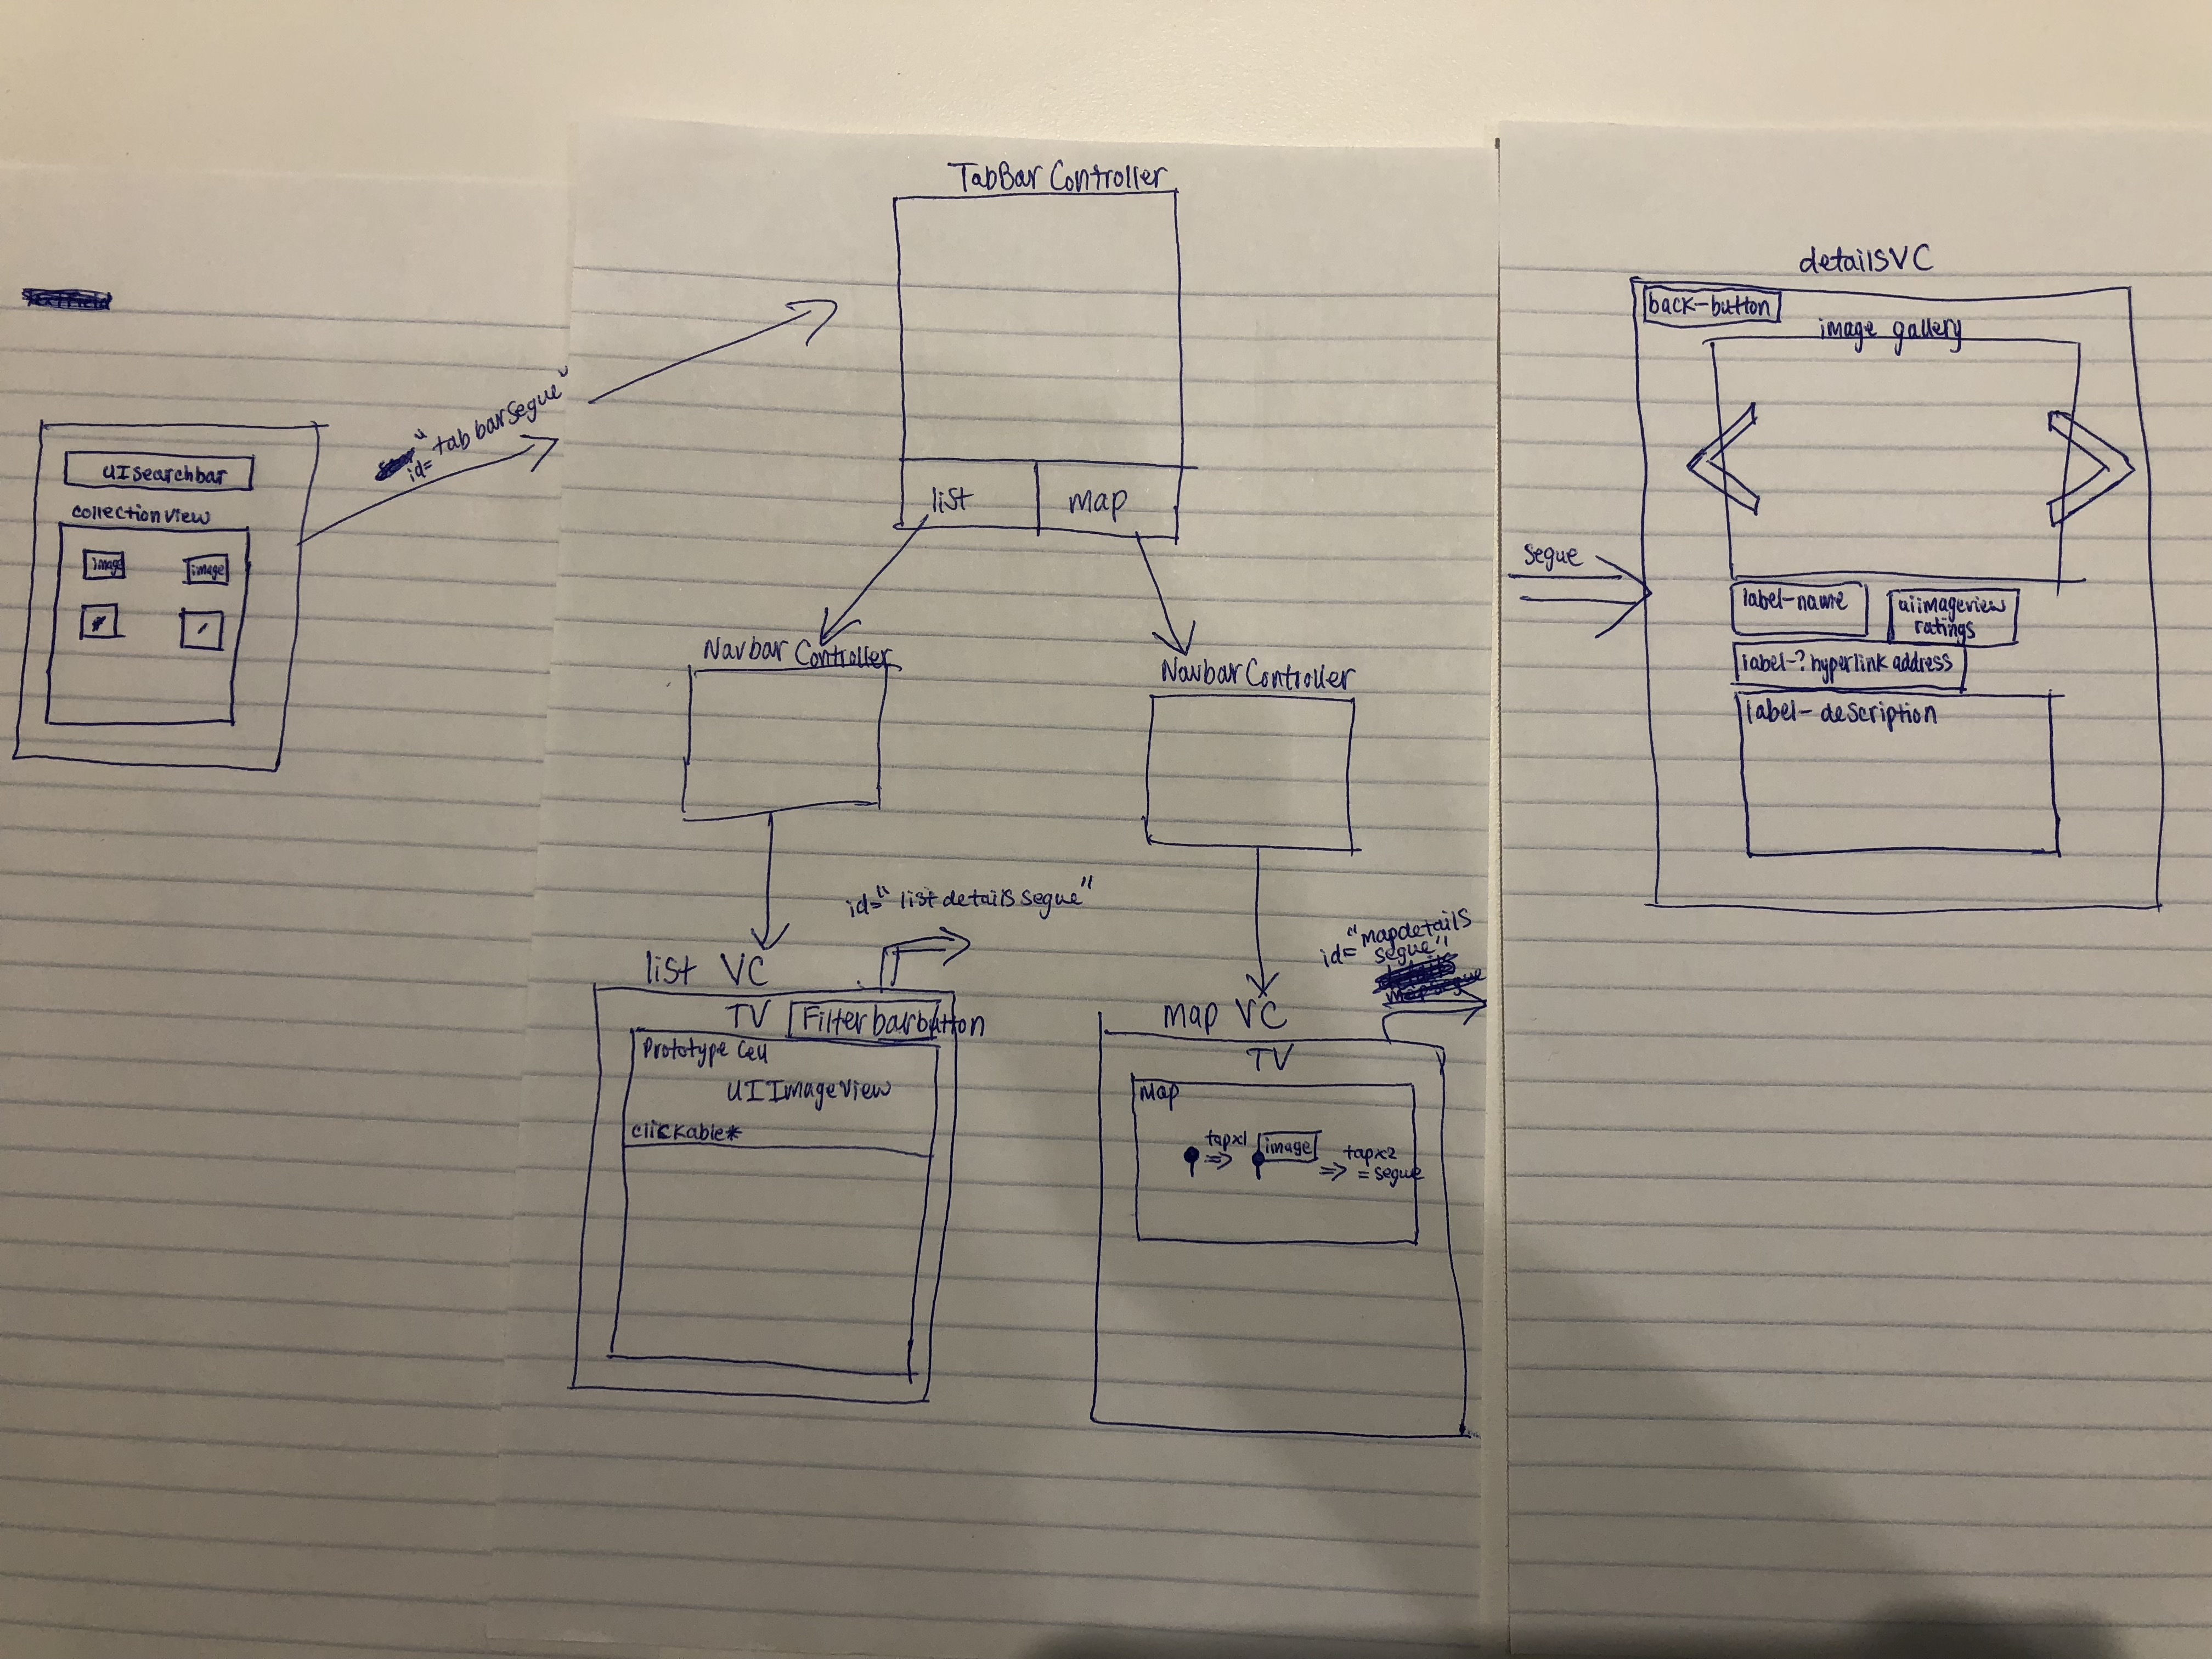 UIsearchbar
collectionview
image
image
id= "tabbarsegue"
TabBar Controller
list
map
Navbar Controller
Navbar Controller
id="listdetailssegue"
list VC
TV
Filterbarbutton
Prototype Cell
UIImageView
clickable*
id= "mapdetails
segue"
map VC
TV
map
tapx1
image
tapx2
= segue
segue
detailsVC
back-button
image gallery
label-name
uiimageview
ratings
label-? hyperlink address
label- description